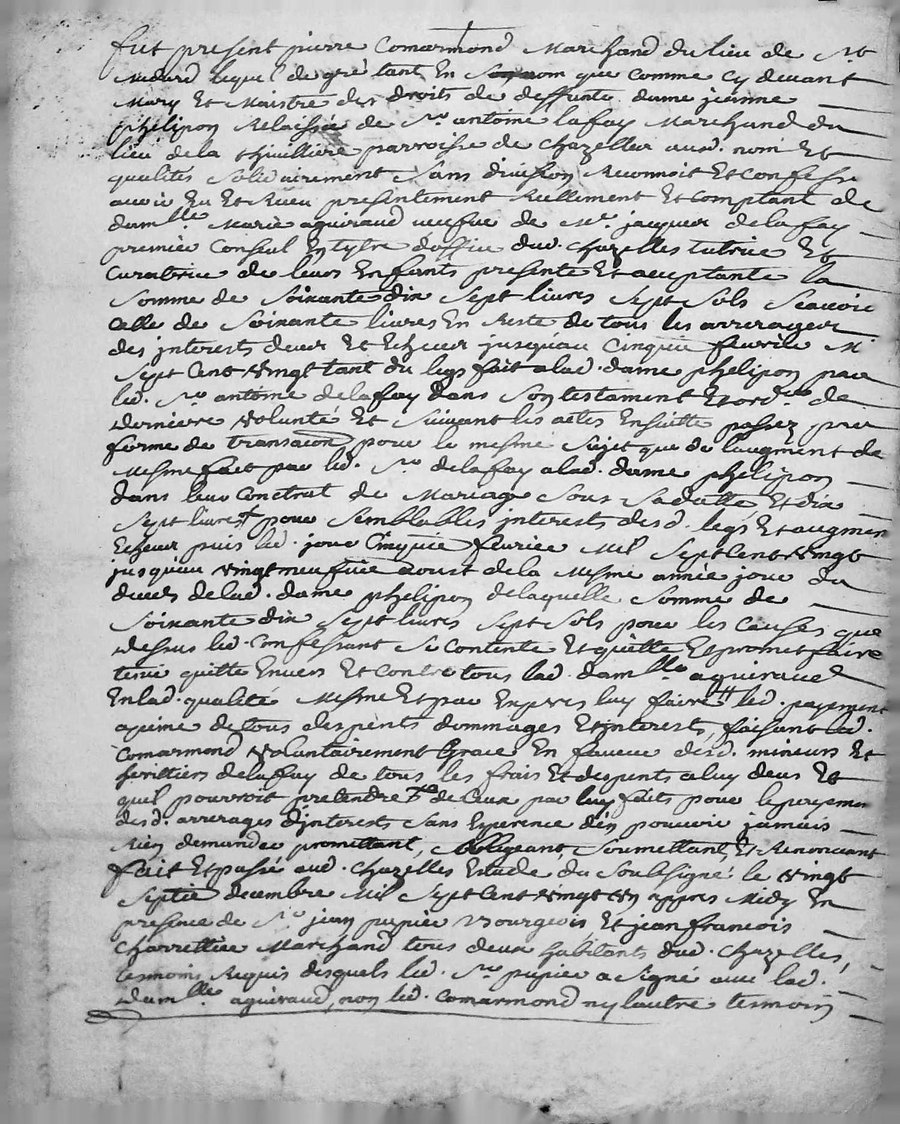 fut present pierre Comarmond Marchand du lieu de St
Medard lequel de gré tant En son nom que comme cy devant
Mary Et Maistre des droits de deffunte dame jeanne
phelipon Relaissée de Sr antoine lafay Marchand du
lieu de la thuilliere parroisse de Chazelles aud. nom Et
qualités Solidairement Sans division Reconnoit Et Confesse
avoir Eu Et Receu presentement Reellement Et comptant de
damlle Marie aguiraud veufve de Mr. jacques delafay
premier Consul En tytre doffice dud. Chazelles tutrice Et
Curatrice de leurs Enfants presente Et acceptante la
Somme de Soixante dix Sept livres Sept Sols Scavoir
Celle de Soixante livres En Reste de tous les arrerages
des interests deus Et Echeus jusquau Cinquie fevrier Mil
Sept Cent vingt tant du legs fait a lad. dame phelipon par
led. Sr antoine delafay dans Son testament Et ord.re de
derniere volunté Et Suivant les actes Ensuitte passez par
forme de transaction pour le mesme Sujet que de laugment de
Mesme fait par led. Sr delafay a lad. dame phelipon
dans leur Contrat de Mariage Sous Sa datte, Et dix
Sept livres pour Semblables interests desd. legs Et augment
Echeus puis led. jour Cinquie fevrier Mil Sept Cent vingt
jusquau vingt neufvie aoust de la Mesme année jour du
deces de lad. dame phelipon de laquelle Somme de
Soixante dix Sept livres Sept Sols pour les Causes que
dessus led. Confessant Se Contente Et quitte Et promet faire
tenir quitte Envers Et Contre tous lad. damlle aguiraud
En lad. qualité Mesme Et par Expres luy faire led. payement
a peine de tous despents dommages Et interests, faisant led.
Comarmond volontairement Grace En faveur desd. mineurs Et
heritiers delafay de tous les frais Et despents a luy deus Et
quil pourroit pretendre de Ceux par luy faits pour le payemen
desd. arrerages dinterests Sans Esperence den pouvoir jamais
Rien demander promettant, obligeant, Soumettant, Et Renonceant
fait Et passé aud. Chazelles Estude du Soubsigné le vingt
Septie decembre Mil Sept Cent vingt un appres Midy En
presence de Sr jean pupier Bourgeois, Et jean francois
Charrettier Marchand tous deux habitants dud. Chazelles,
tesmoins Requis desquels led. Sr pupier a Signé avec lad.
damlle aguiraud, non led. Comarmond ny lautre tesmoin